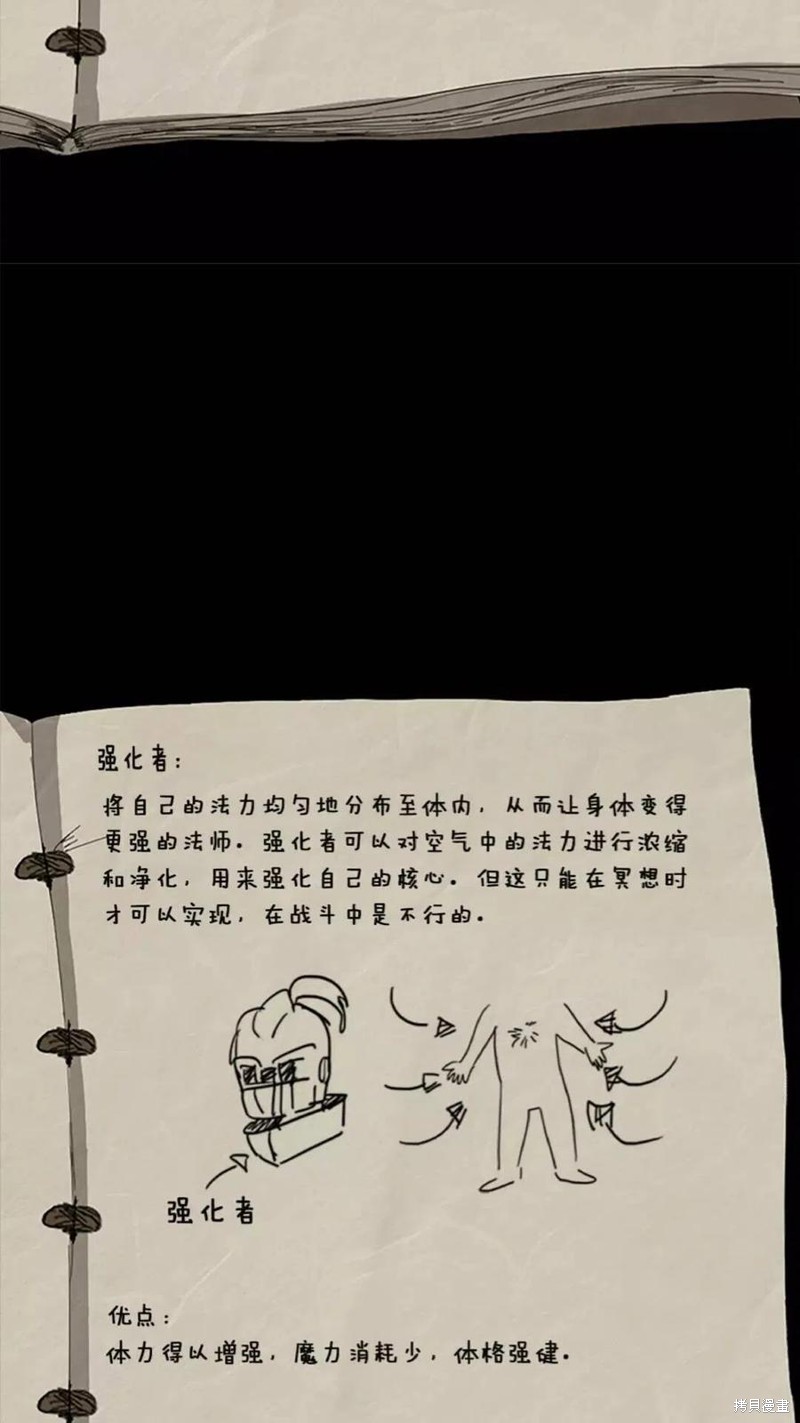 强化者：
将自己的法力均匀地分布至体内，从而让身体变得
更强的法师．强化者可以对空气中的法力进行浓缩
和净化，用来强化自己的核心．但这只能在冥想时
才可以实现，在战斗中是不行的．
强化者
优点：
体力得以增强，魔力消耗少，体格强健．
拷貝漫畫